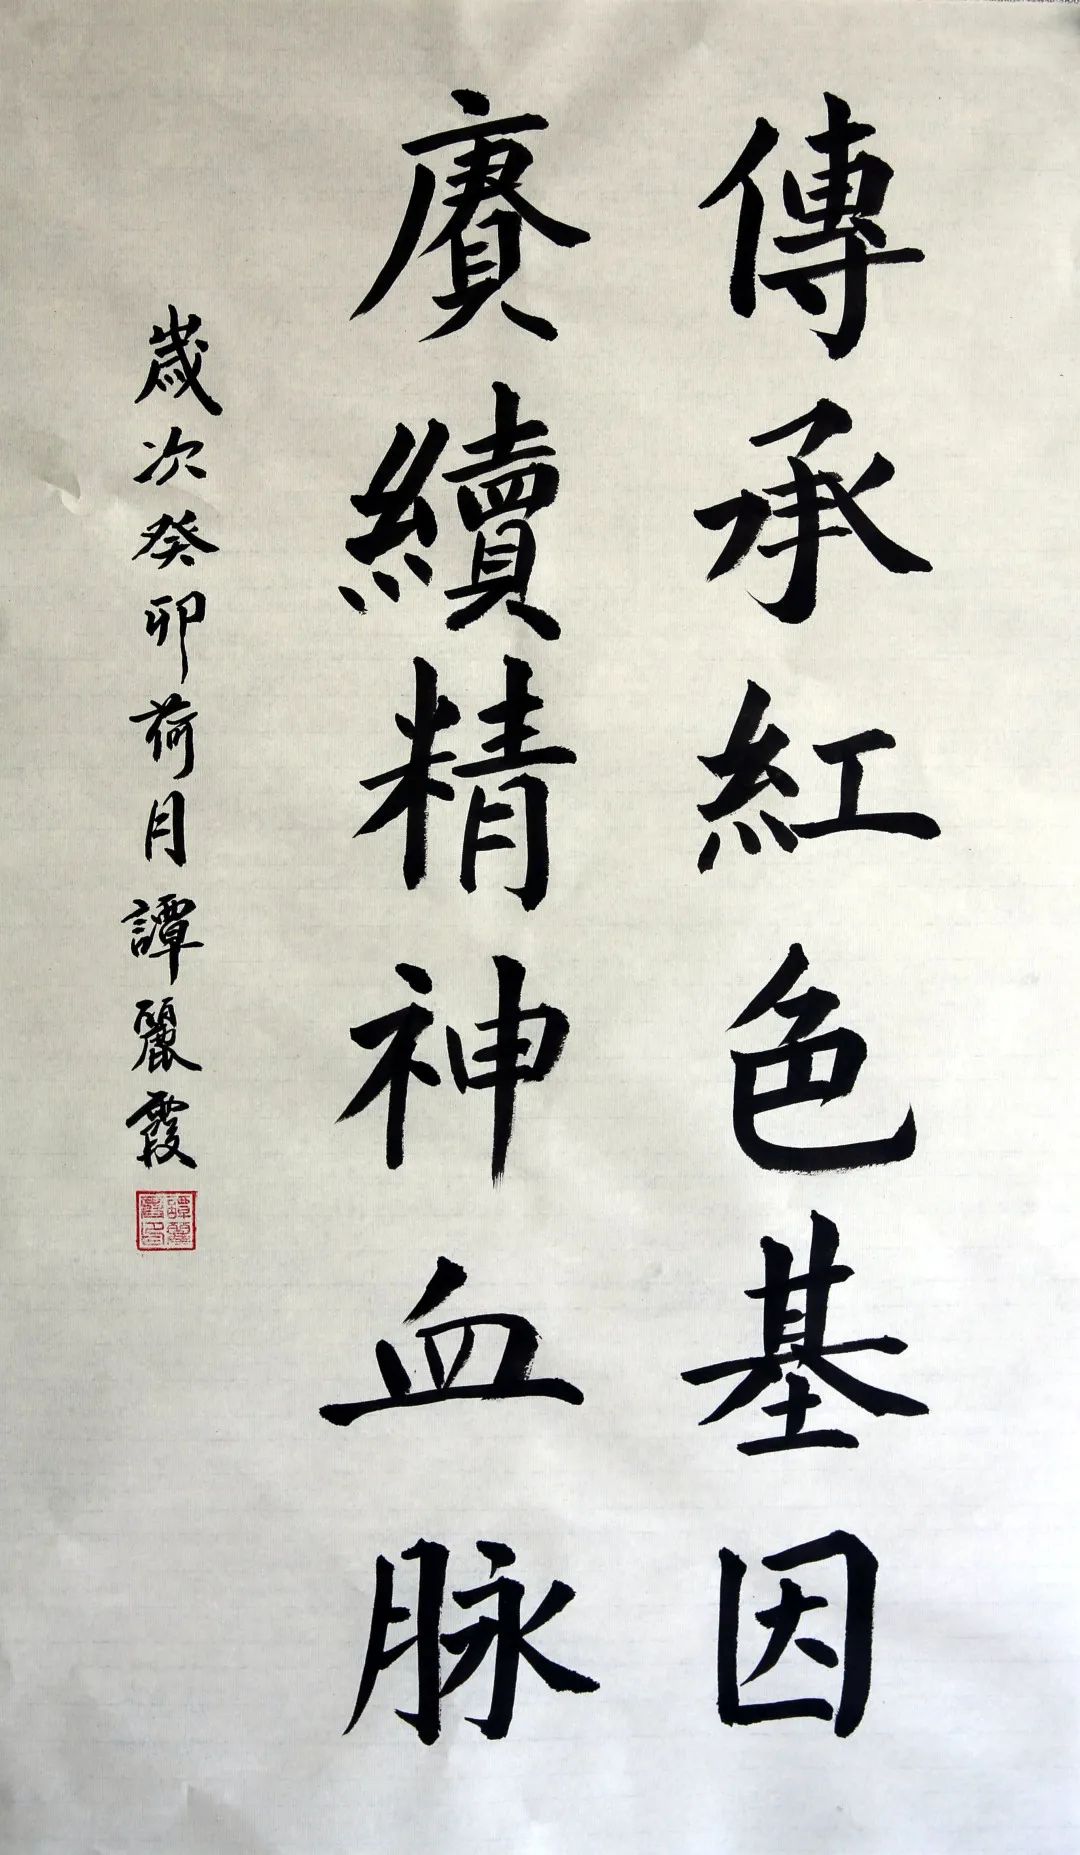 傳承紅色基因
賡續精神血脉
歲次癸卯荷月譚麗霞